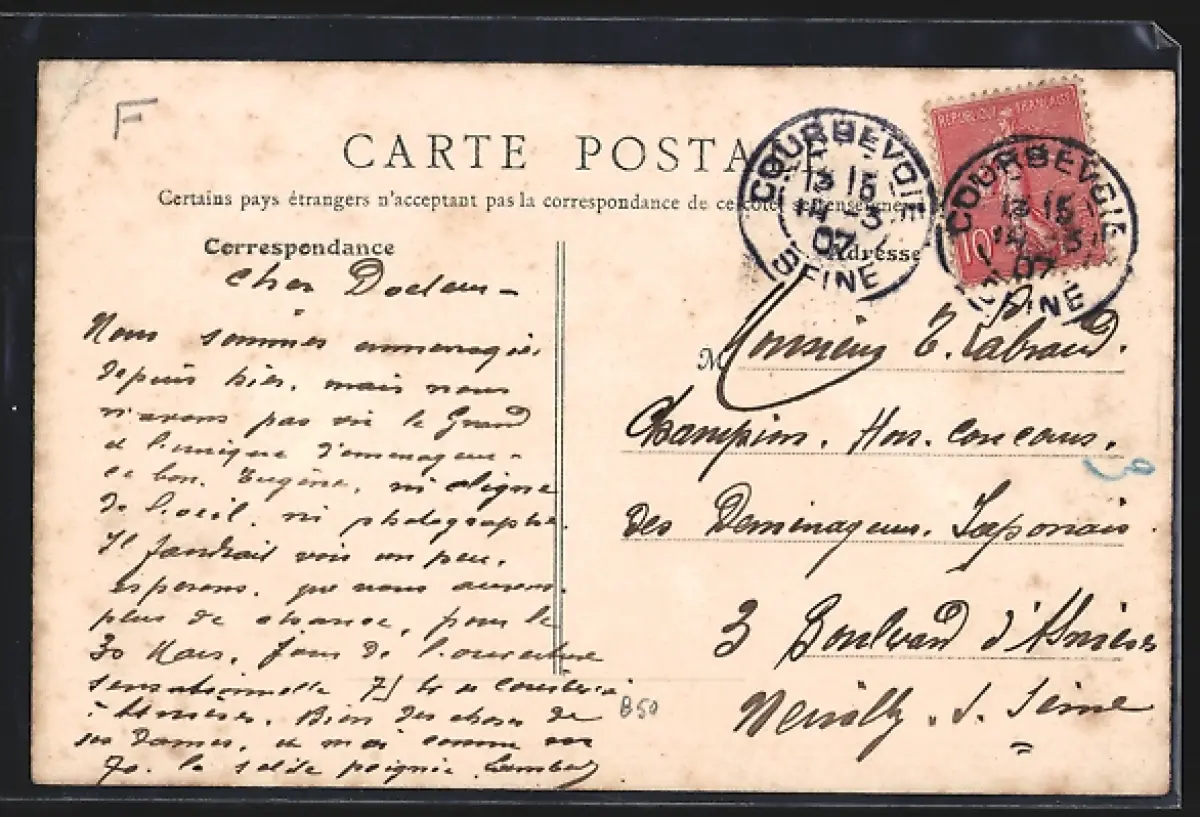 F
CARTE POSTA
Certains pays étrangers n'acceptent pas la correspondance de ce côté
Correspondance
Adresse
COURBEVOIE
13 15
14 -3
07
SEINE
REPUBLIQUE FRANÇAISE
10
COURBEVOIE
13 15
14 -3
07
INE
Cher Docteur -
Nous sommes emménagés
depuis hier, mais nous
n'avons pas vu le Grand
et l'unique
ce bon Eugène, ni cligné
de l'oeil, ni photographié.
Il faudrait voir un peu.
espérons, que nous aurons
plus de chance, pour le
30 Mars, jour de l'ouverture
sensationnelle 75
Asnières. Bien des choses de
ces dames, et moi comme
70. la solide poignée.
B50
M
Monsieur E. Labraud.
Champion. Hors. Concours.
des Déménageurs. Japonais.
3 Boulevard d'Asnières
Neuilly. s. Seine